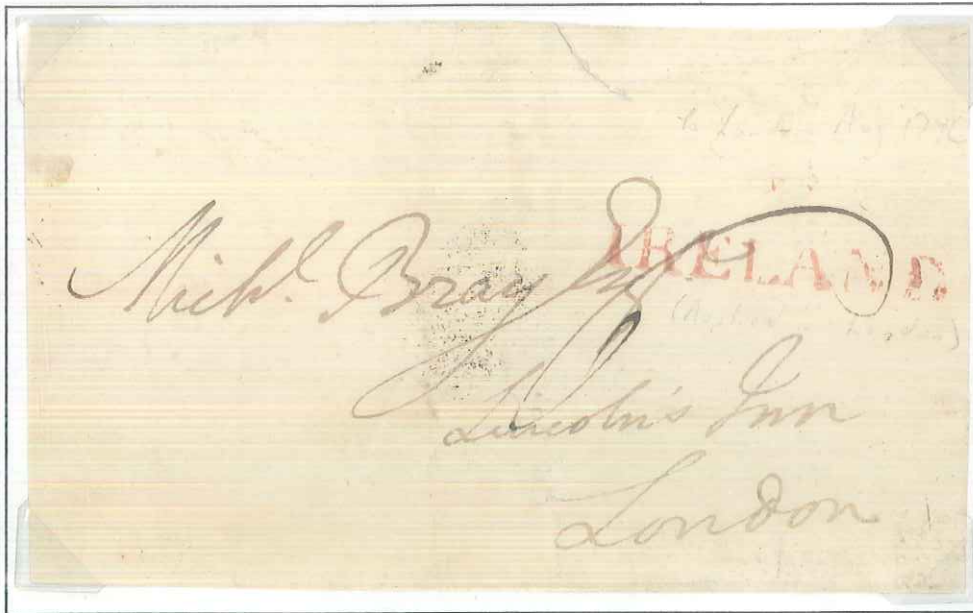 IRELAND
Michl. Bray Esqr
Lincoln's Inn
London